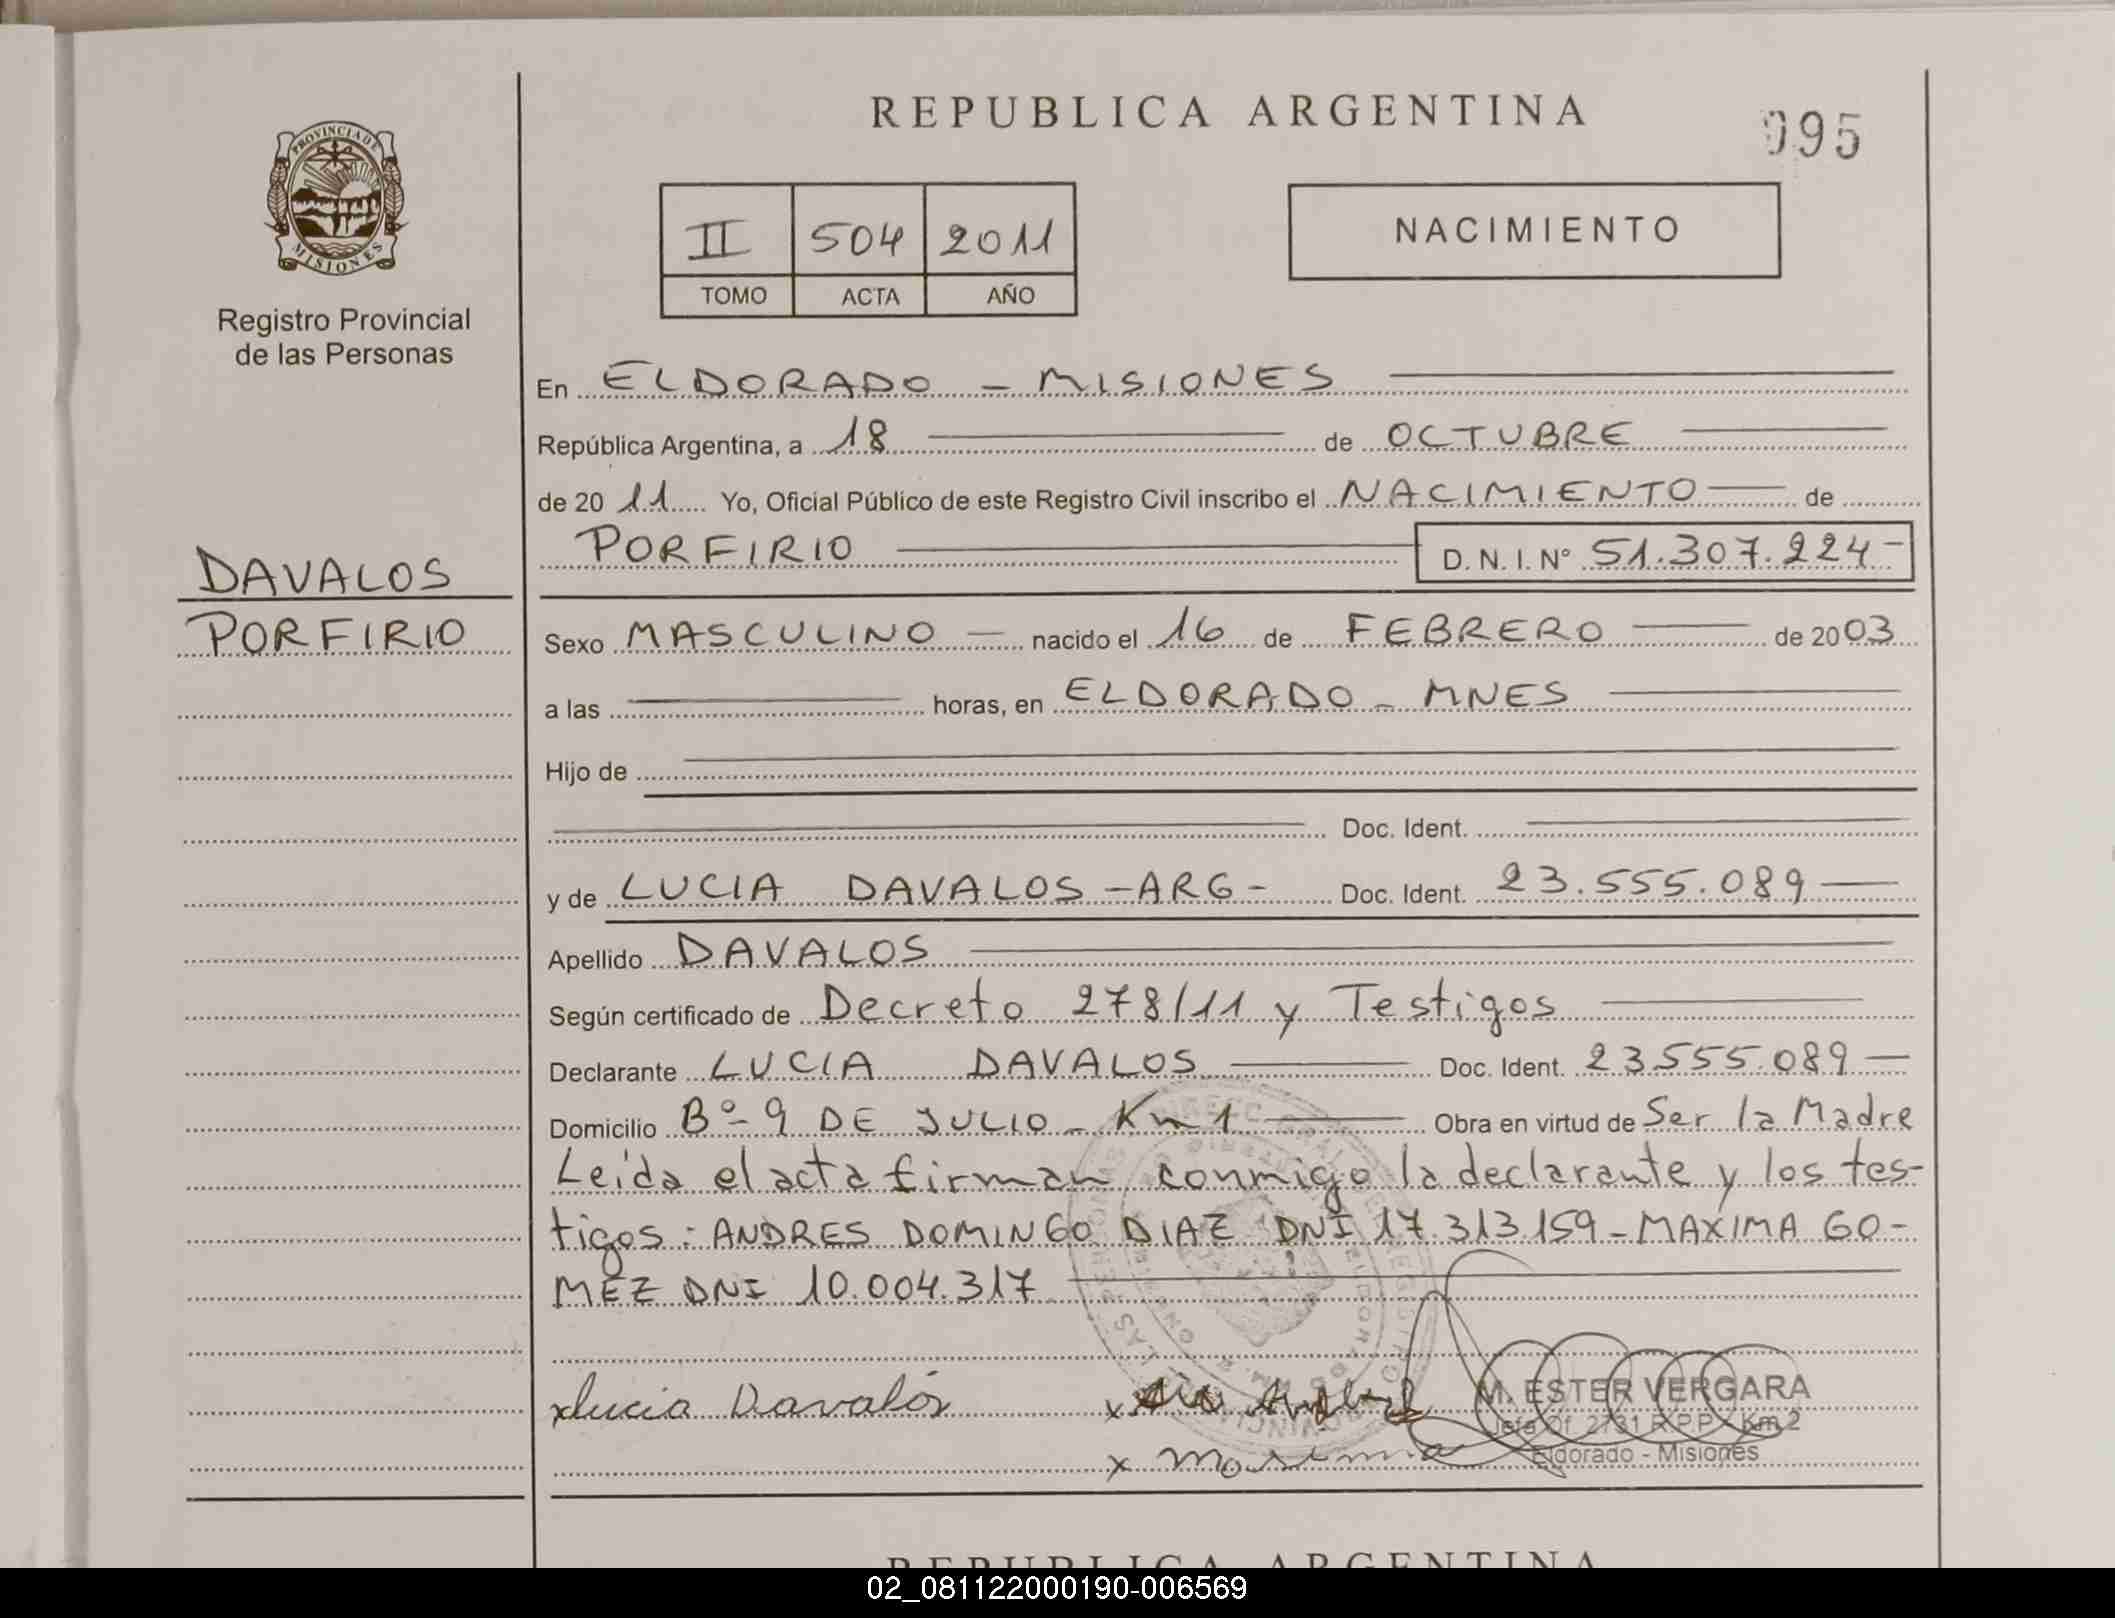 REPUBLICA ARGENTINA
095
PROVINCIA DE
MISIONES
Registro Provincial
de las Personas
II 504 2011
TOMO ACTA AÑO
NACIMIENTO
En ELDORADO - MISIONES
República Argentina, a 18 de OCTUBRE
de 2011 Yo, Oficial Público de este Registro Civil inscribo el NACIMIENTO de
PORFIRIO D. N. I. Nº 51.307.224-
DAVALOS
PORFIRIO
Sexo MASCULINO — nacido el 16 de FEBRERO de 2003
a las horas, en ELDORADO - MNES
Hijo de
Doc. Ident.
y de LUCIA DAVALOS -ARG- Doc. Ident. 23.555.089
Apellido DAVALOS
Según certificado de Decreto 278/11 y Testigos
Declarante LUCIA DAVALOS Doc. Ident. 23.555.089
Domicilio Bº- 9 DE JULIO - Km 1 Obra en virtud de Ser la Madre
Leída el acta firman conmigo la declarante y los tes-
tigos: ANDRES DOMINGO DIAZ DNI 17.313.159 - MAXIMA GO-
MEZ DNI 10.004.317
x Lucia Davalos x
M. ESTER VERGARA
Jefa Of. 2731 R.P.P. - Km 2
Eldorado - Misiones
x
REPUBLICA ARGENTINA
02_081122000190-006569